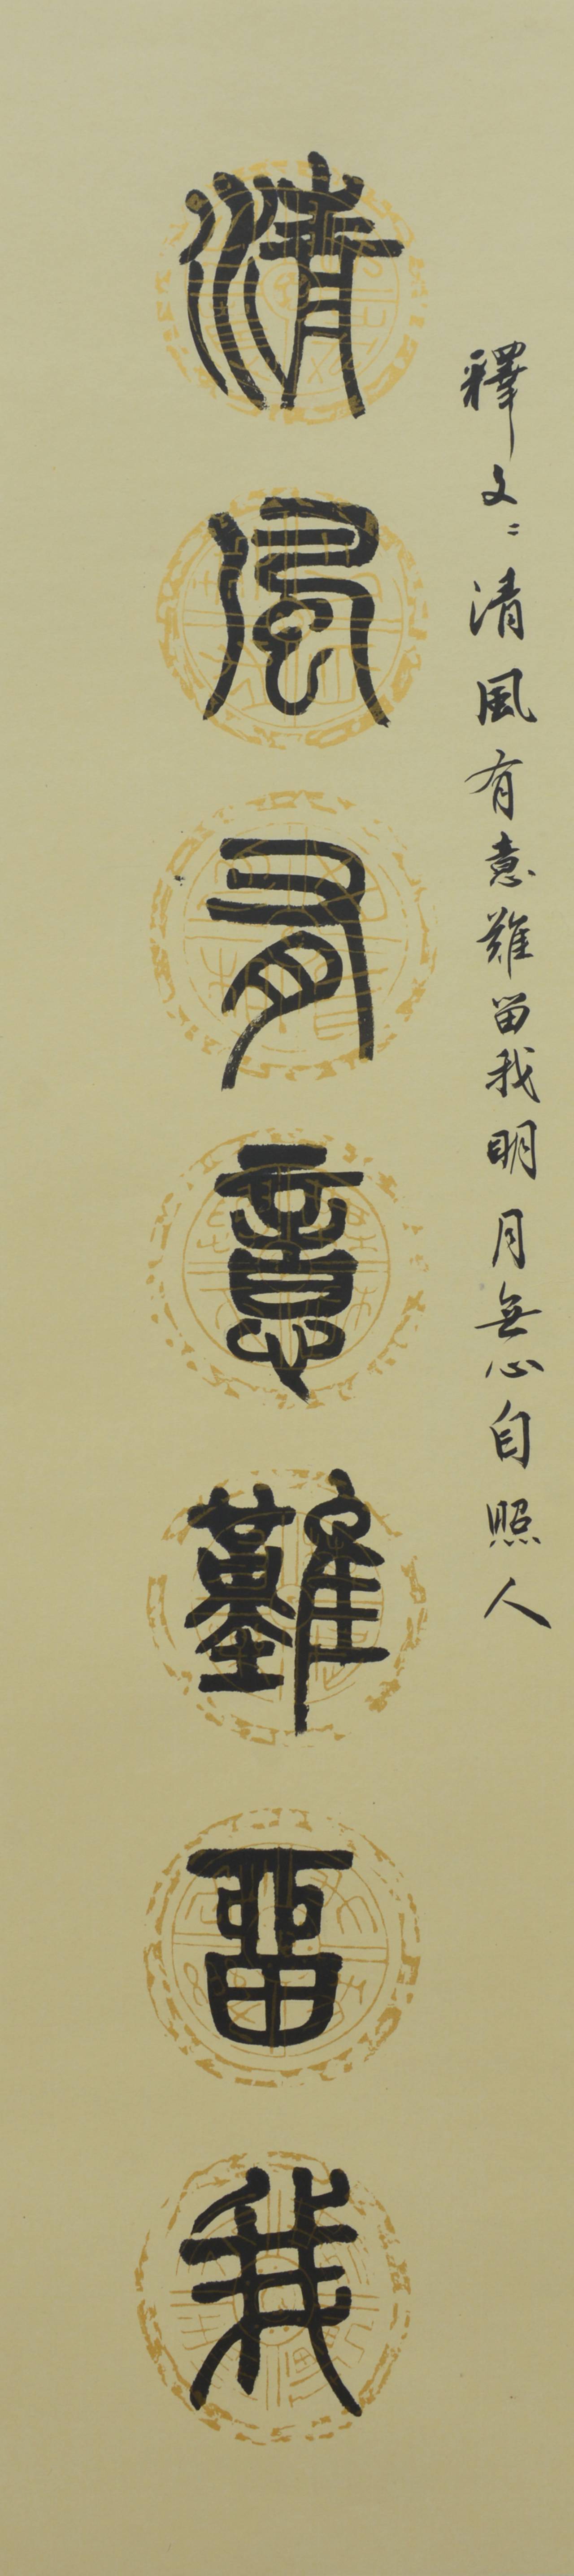 釋文：清風有意難留我明月無心自照人
清風有意難留我